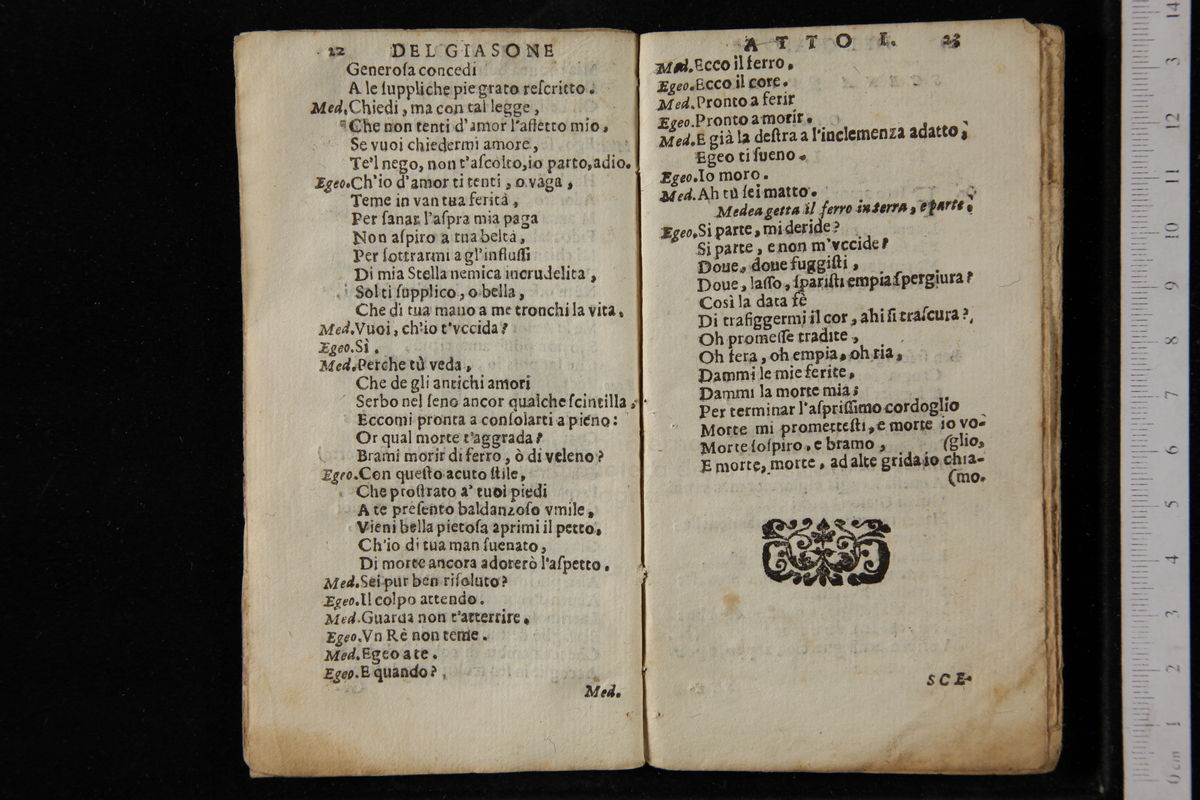 22 DEL GIASONE
Generoſa concedi
A le ſuppliche pie grato reſcritto.
Med. Chiedi, ma con tal legge,
Che non tenti d'amor l'affetto mio,
Se vuoi chiedermi amore,
Te'l nego, non t'aſcolto, io parto, adio.
Egeo. Ch'io d'amor ti tenti, o vaga,
Teme in van tua ferità,
Per ſanar l'aſpra mia paga
Non aſpiro a tua beltà,
Per ſottrarmi a gl'influſſi
Di mia Stella nemica incrudelita,
Sol ti ſupplico, o bella,
Che di tua mano a me tronchi la vita.
Med. Vuoi, ch'io t'vccida?
Egeo. Sì.
Med. Perche tù veda,
Che de gli antichi amori
Serbo nel ſeno ancor qualche ſcintilla,
Eccomi pronta a conſolarti a pieno:
Or qual morte t'aggrada?
Brami morir di ferro, ò di veleno?
Egeo. Con queſto acuto ſtile,
Che proſtrato a' tuoi piedi
A te preſento baldanzoſo vmile,
Vieni bella pietoſa aprimi il petto,
Ch'io di tua man ſuenato,
Di morte ancora adorerò l'aſpetto.
Med. Sei pur ben riſoluto?
Egeo. Il colpo attendo.
Med. Guarda non t'atterrire.
Egeo. Vn Rè non teme.
Med. Egeo a te.
Egeo. E quando?
Med.
ATTO I. 23
Med. Ecco il ferro.
Egeo. Ecco il core.
Med. Pronto a ferir
Egeo. Pronto a morir.
Med. E già la deſtra a l'inclemenza adatto;
Egeo ti ſueno.
Egeo. Io moro.
Med. Ah tù ſei matto.
Medea getta il ferro in terra, e parte.
Egeo. Si parte, mi deride?
Si parte, e non m'vccide?
Doue, doue fuggiſti,
Doue, laſſo, ſpariſti empia ſpergiura?
Così la data fè
Di trafiggermi il cor, ahi ſi traſcura?
Oh promeſſe tradite,
Oh fera, oh empia, oh ria,
Dammi le mie ferite,
Dammi la morte mia;
Per terminar l'aſpriſſimo cordoglio
Morte mi prometteſti, e morte io vo-
Morte ſoſpiro, e bramo, (glio,
E morte, morte, ad alte grida io chia-
(mo.
SCE-